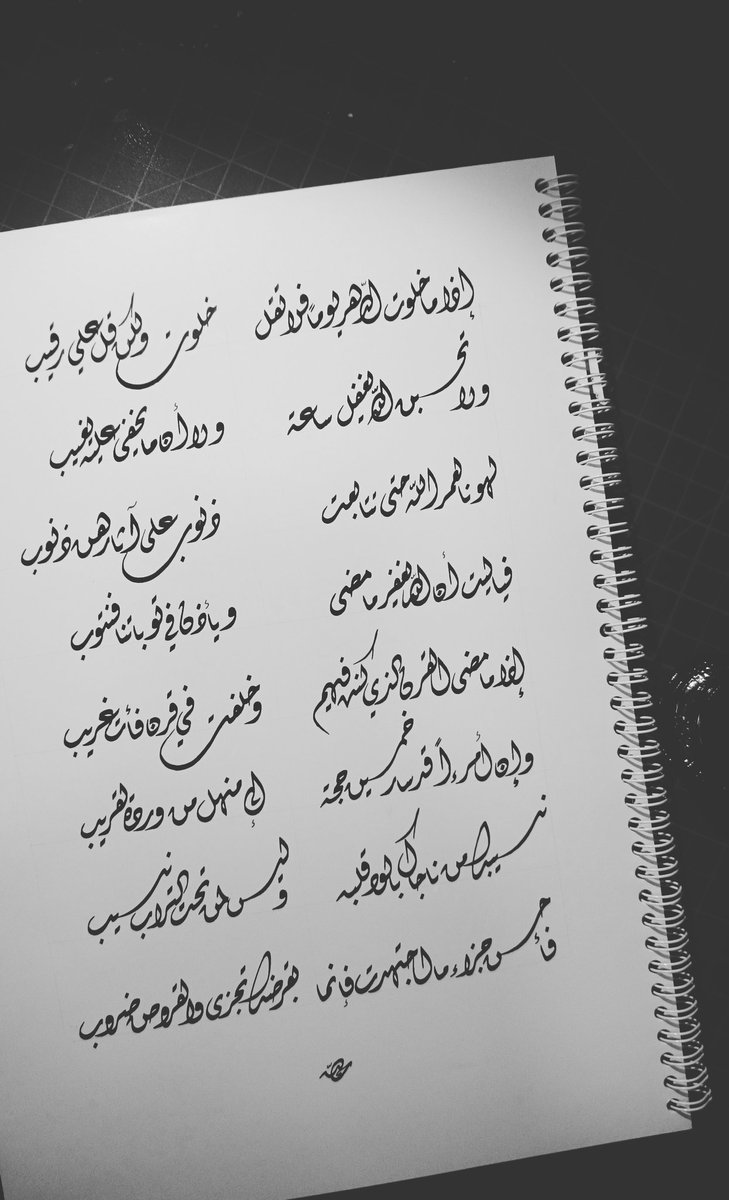 إذا ما خلوت الدهر يوماً فلا تقل خلوت ولكن قل علي رقيب
ولا تحسبن الله يغفل ساعة ولا أن ما يخفى عليه يغيب
لهونا لعمر الله حتى تتابعت ذنوب على آثارهن ذنوب
فيا ليت أن الله يغفر ما مضى ويأذن في توباتنا فنتوب
إذا ما مضى القرن الذي كنت فيهم وخلفت في قرن فأنت غريب
وإن أمرءاً قد سار خمسين حجة إلى منهل من ورده لقريب
نسيبك من ناجاك بالود قلبه وليس لمن تحت التراب نسيب
فأحسن جزاء ما اجتهدت فإنما بقرضك تجزى والقروض ضروب